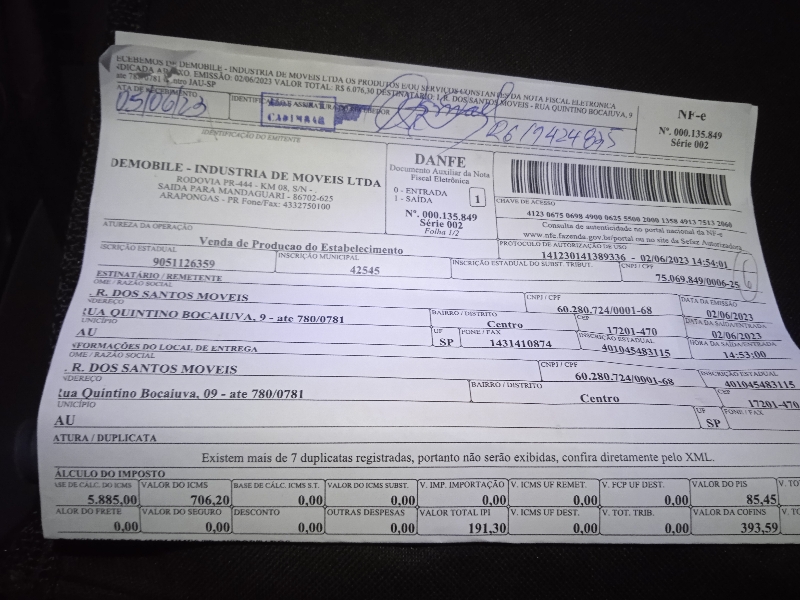 ECEBEMOS DE DEMOBILE - INDUSTRIA DE MOVEIS LTDA OS PRODUTOS E/OU SERVIÇOS CONSTANTES DA NOTA FISCAL ELETRONICA
NDICADA ABAIXO. EMISSÃO: 02/06/2023 VALOR TOTAL: R$ 6.076,30 DESTINATÁRIO: I. R. DOS SANTOS MOVEIS - RUA QUINTINO BOCAIUVA, 9
ate 780/0781 Centro JAU-SP
ATA DE RECEBIMENTO
05/06/23
NF-e
Nº. 000.135.849
Série 002
IDENTIFICAÇÃO DO EMITENTE
DEMOBILE - INDUSTRIA DE MOVEIS LTDA
RODOVIA PR-444 - KM 08, S/N -
SAIDA PARA MANDAGUARI - 86702-625
ARAPONGAS - PR Fone/Fax: 4332750100
DANFE
Documento Auxiliar da Nota
Fiscal Eletrônica
0 - ENTRADA
1 - SAÍDA
1
Nº. 000.135.849
Série 002
Folha 1/2
CHAVE DE ACESSO
4123 0675 0698 4900 0635 5500 2000 1358 4913 7513 2060
Consulta de autenticidade no portal nacional da NF-e
www.nfe.fazenda.gov.br/portal ou no site da Sefaz Autorizadora
ATUREZA DA OPERAÇÃO
Venda de Producao do Estabelecimento
PROTOCOLO DE AUTORIZAÇÃO DE USO
141230141389336 - 02/06/2023 14:54:01
NSCRIÇÃO ESTADUAL
9051126359
INSCRIÇÃO MUNICIPAL
42545
INSCRIÇÃO ESTADUAL DO SUBST. TRIBUT.
CNPJ / CPF
75.069.849/0006-25
ESTINATÁRIO / REMETENTE
OME / RAZÃO SOCIAL
. R. DOS SANTOS MOVEIS
CNPJ / CPF
60.280.724/0001-68
DATA DA EMISSÃO
02/06/2023
NDEREÇO
RUA QUINTINO BOCAIUVA, 9 - ate 780/0781
BAIRRO / DISTRITO
Centro
CEP
17201-470
DATA DA SAÍDA/ENTRADA
02/06/2023
UNICÍPIO
AU
UF
SP
FONE / FAX
1431410874
INSCRIÇÃO ESTADUAL
401045483115
HORA DA SAÍDA/ENTRADA
14:53:00
NFORMAÇÕES DO LOCAL DE ENTREGA
OME / RAZÃO SOCIAL
. R. DOS SANTOS MOVEIS
CNPJ / CPF
60.280.724/0001-68
INSCRIÇÃO ESTADUAL
401045483115
NDEREÇO
Rua Quintino Bocaiuva, 09 - ate 780/0781
BAIRRO / DISTRITO
Centro
CEP
17201-470
UNICÍPIO
AU
UF
SP
FONE / FAX
ATURA / DUPLICATA
Existem mais de 7 duplicatas registradas, portanto não serão exibidas, confira diretamente pelo XML.
ÁLCULO DO IMPOSTO
ASE DE CÁLC. DO ICMS
5.885,00
VALOR DO ICMS
706,20
BASE DE CÁLC. ICMS S.T.
0,00
VALOR DO ICMS SUBST.
0,00
V. IMP. IMPORTAÇÃO
0,00
V. ICMS UF REMET.
0,00
V. FCP UF DEST.
0,00
VALOR DO PIS
85,45
V. TO
ALOR DO FRETE
0,00
VALOR DO SEGURO
0,00
DESCONTO
0,00
OUTRAS DESPESAS
0,00
VALOR TOTAL IPI
191,30
V. ICMS UF DEST.
0,00
V. TOT. TRIB.
0,00
VALOR DA COFINS
393,59
V. TOT